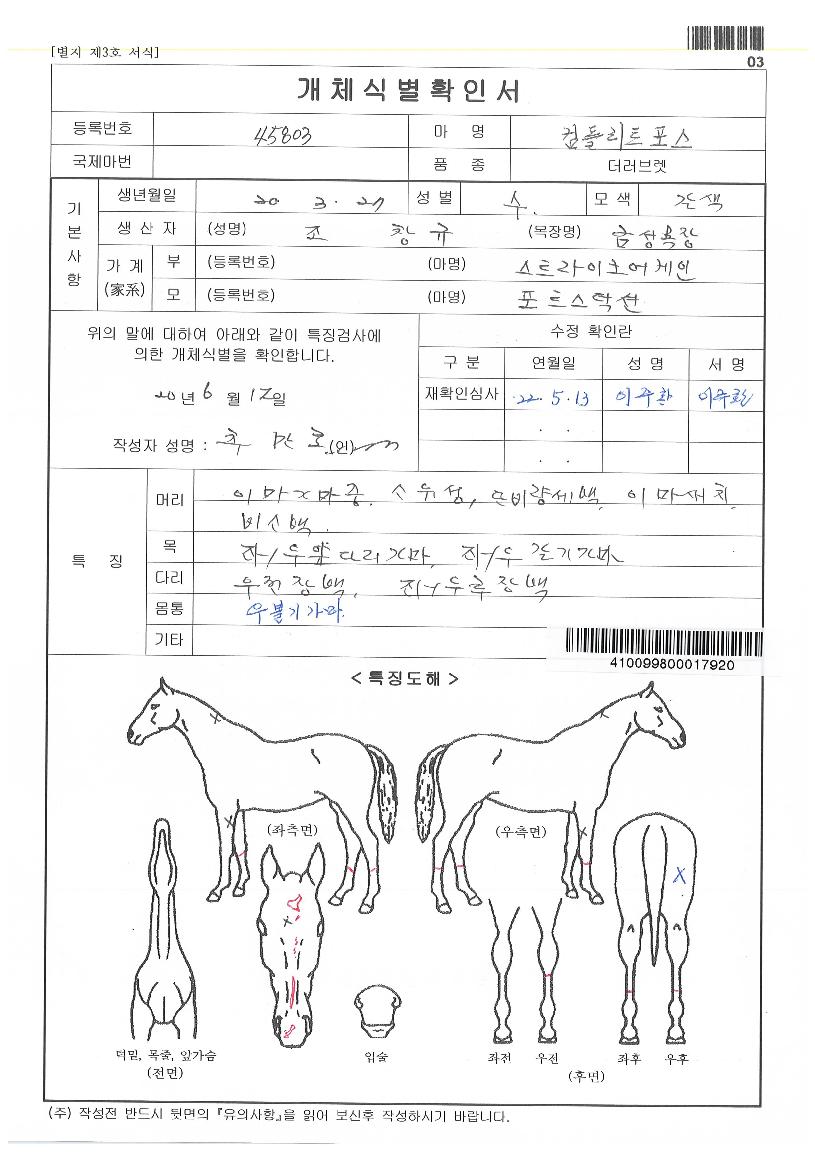 [별지 제3호 서식]
03
개체식별확인서
등록번호 45803 마 명 컴플리트포스
국제마번 품 종 더러브렛
기본사항
생년월일 20 3. 27 성별 수. 모색 갈색
생 산 자 (성명) 조 창 규 (목장명) 금성목장
가계(家系) 부 (등록번호) (마명) 스트라이크어게인
모 (등록번호) (마명) 포트스탁산
위의 말에 대하여 아래와 같이 특징검사에
의한 개체식별을 확인합니다.
20년 6월 12일
작성자 성명 : (인)
수정 확인란
구 분 연월일 성 명 서 명
재확인심사 22. 5. 13 이주환 이주환
. .
. .
특 징
머리 이마가마중, 유성,
비소백.
목 좌/우 가마, 좌/우 가마
다리 우전장백, 좌/우후장백
몸통 우볼기가마.
기타
410099800017920
< 특징도해 >
(좌측면) (우측면)
더밑, 목줄, 앞가슴
(전면)
입술
좌전 우전
좌후 우후
(후면)
(주) 작성전 반드시 뒷면의 『유의사항』을 읽어 보신후 작성하시기 바랍니다.